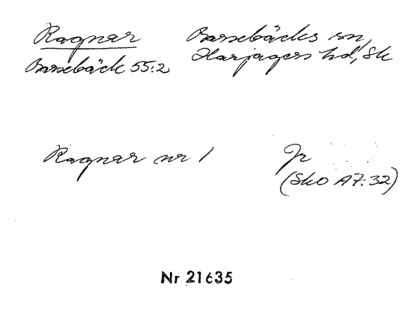 Ragnar Barsebäcks sn,
Barsebäck 55:2 Harjagers hd, Sk
Ragnar nr 1 Jr
(SkO A7:32)
Nr 21635